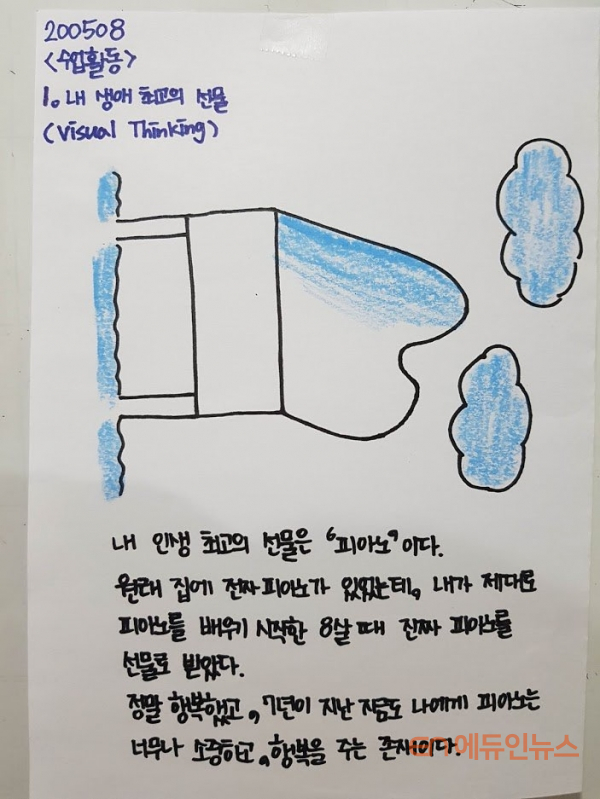 200508
<수업활동>
1. 내 생애 최고의 선물
(Visual Thinking)
내 인생 최고의 선물은 "피아노"이다.
원래 집에 전자피아노가 있었는데, 내가 제대로
피아노를 배우기 시작한 8살 때 진짜 피아노를
선물로 받았다.
정말 행복했고, 7년이 지난 지금도 나에게 피아노는
너무나 소중하고, 행복을 주는 존재이다.
en 에듀인뉴스